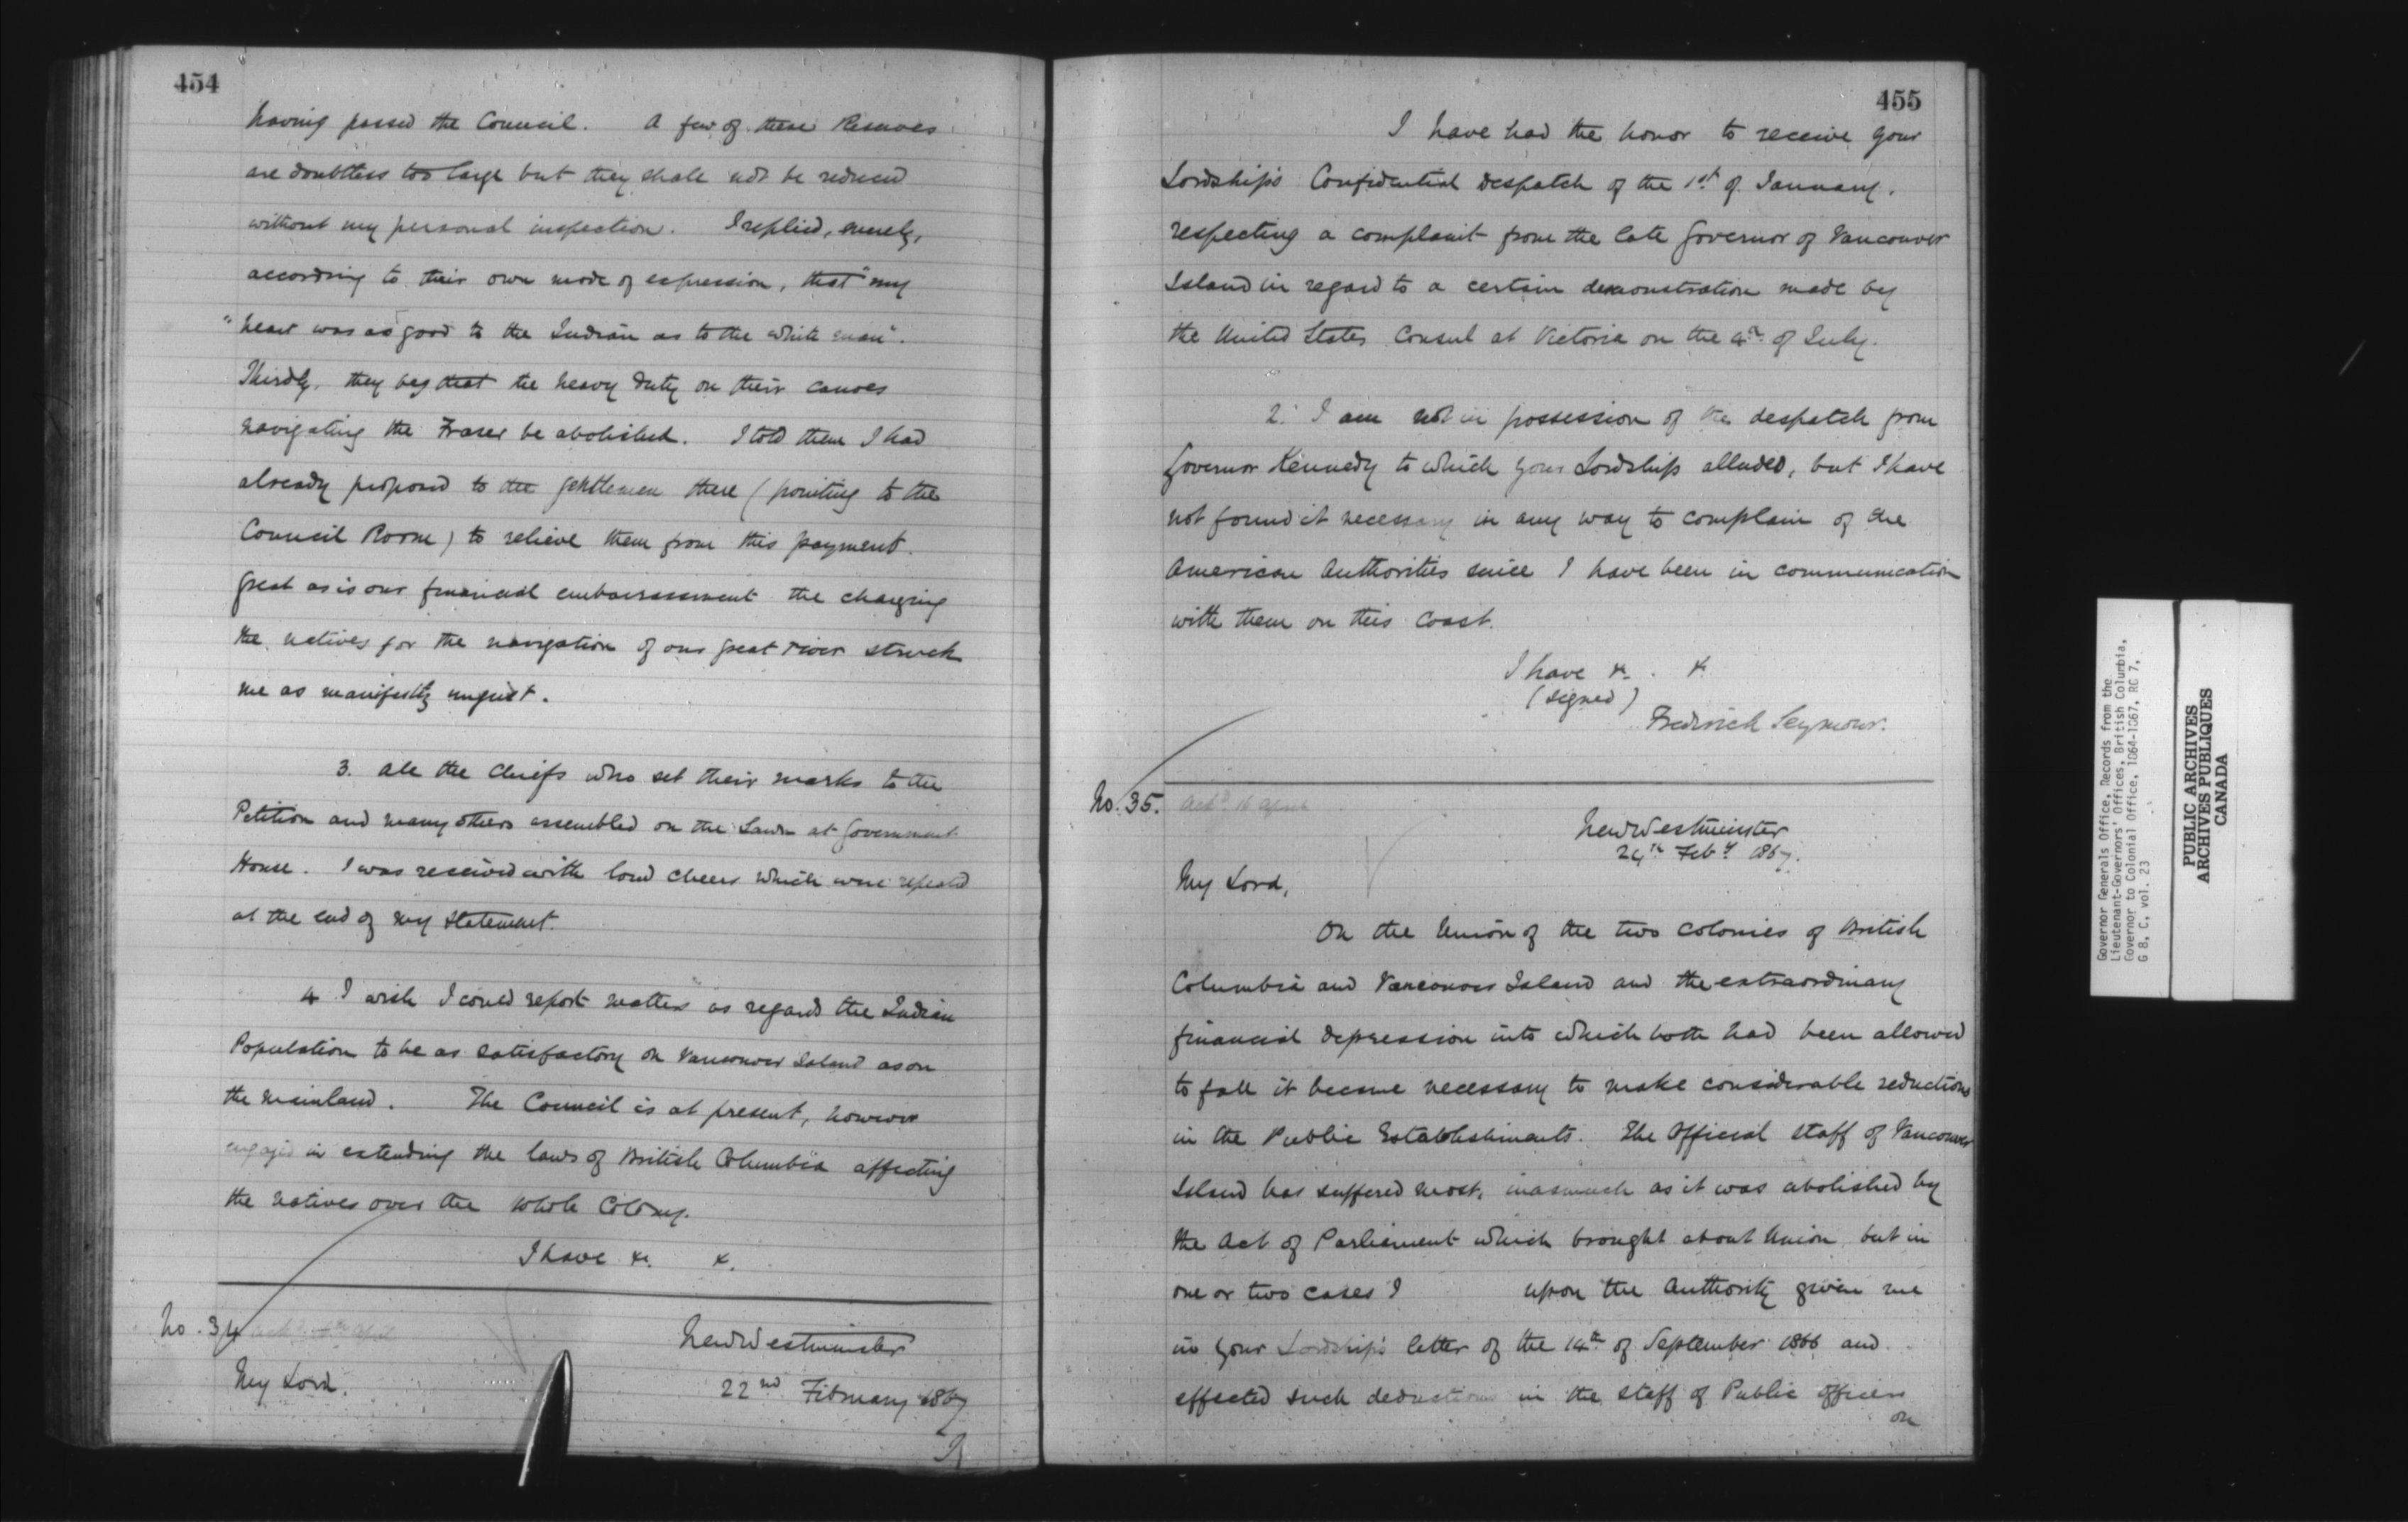 454
having passed the Council. A few of these Reserves
are doubtless too large but they shall not be reduced
without my personal inspection. I replied, merely,
according to their own mode of expression, that "my
"heart was as good to the Indian as to the white man".
Thirdly, they beg that the heavy duty on their canoes
navigating the Fraser be abolished. I told them I had
already proposed to the gentlemen there (pointing to the
Council Room) to relieve them from this payment.
Great as is our financial embarrassment the charging
the natives for the navigation of our great river struck
me as manifestly unjust.
3. All the Chiefs who set their marks to the
Petition and many others assembled on the Lawn at Government
House. I was received with loud cheers which were repeated
at the end of my statement.
4 I wish I could report matters as regards the Indian
Population to be as satisfactory on Vancouver Island as on
the mainland. The Council is at present, however
engaged in extending the laws of British Columbia affecting
the natives over the whole Colony.
I have &c. &c.
No. 34 Ackd. April
New Westminster
22nd February 1867
My Lord.
I
455
I have had the honor to receive your
Lordship's Confidential despatch of the 1st of January.
respecting a complaint from the late Governor of Vancouver
Island in regard to a certain demonstration made by
the United States Consul at Victoria on the 4th of July.
2. I am not in possession of the despatch from
Governor Kennedy to which your Lordship alluded, but I have
not found it necessary in any way to complain of the
American Authorities since I have been in communication
with them on this Coast.
I have &c. &c
(signed)
Frederick Seymour.
No. 35. Ackd 16 April
New Westminster
24th Feby 1867.
My Lord,
On the Union of the two colonies of British
Columbia and Vancouver Island and the extraordinary
financial depression into which both had been allowed
to fall it became necessary to make considerable reductions
in the Public Establishments. The Official Staff of Vancouver
Island has suffered most, inasmuch as it was abolished by
the Act of Parliament which brought about Union, but in
one or two cases I upon the Authority given me
in your Lordship's letter of the 14th of September 1866 and
effected such deductions in the staff of Public officers
on
Governor Generals Office, Records from the
Lieutenant-Governors' Offices, British Columbia,
Governor to Colonial Office, 1864-1867, RG 7,
G 8, C, vol. 23
PUBLIC ARCHIVES
ARCHIVES PUBLIQUES
CANADA